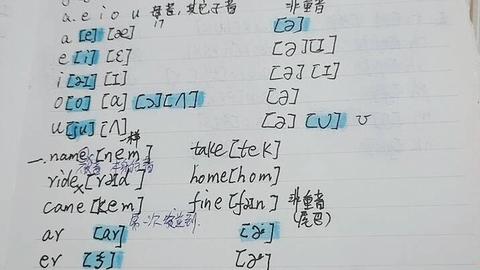 a. e i o u 母音, 其它子音 非重音
a [e] [æ] [ə]
e [i] [ɛ] [ə] [ɪ]
i [aɪ] [ɪ] [ə] [ɪ]
o [o] [ɑ] [ɔ] [ʌ] [ə]
u [ju] [ʌ] [ə] [ʊ] ʊ
一样
一. name [nem] take [tek]
ride [raɪd] home [hom]
came [kem] fine [faɪn] 非重音
(尾巴)
ar [ɑr] [ɚ]
er [ɝ] [ɚ]